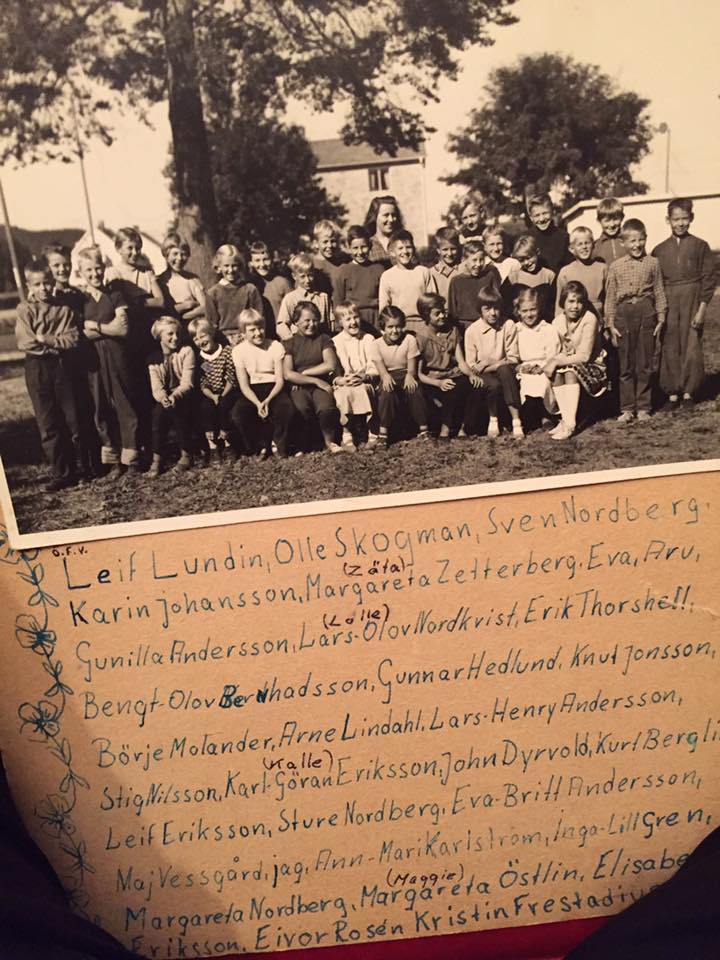 Ö.F.V.
Leif Lundin, Olle Skogman, Sven Nordberg.
(Zäta)
Karin Johansson, Margareta Zetterberg. Eva, Arv,
(Lolle)
Gunilla Andersson, Lars-Olov Nordkvist, Erik Thorshell,
Bengt-Olov Bernhadsson, Gunnar Hedlund, Knut Jonsson,
Börje Molander, Arne Lindahl, Lars-Henry Andersson,
(Kalle)
Stig Nilsson, Karl-Göran Eriksson, John Dyrvold, Kurt Bergli
Leif Eriksson, Sture Nordberg, Eva-Britt Andersson,
Maj Vessgård, jag, Ann-Mari Karlström, Inga-Lill Gren,
(Maggie)
Margareta Nordberg, Margareta Östlin, Elisabe
Eriksson, Eivor Rosén Kristin Frestadius